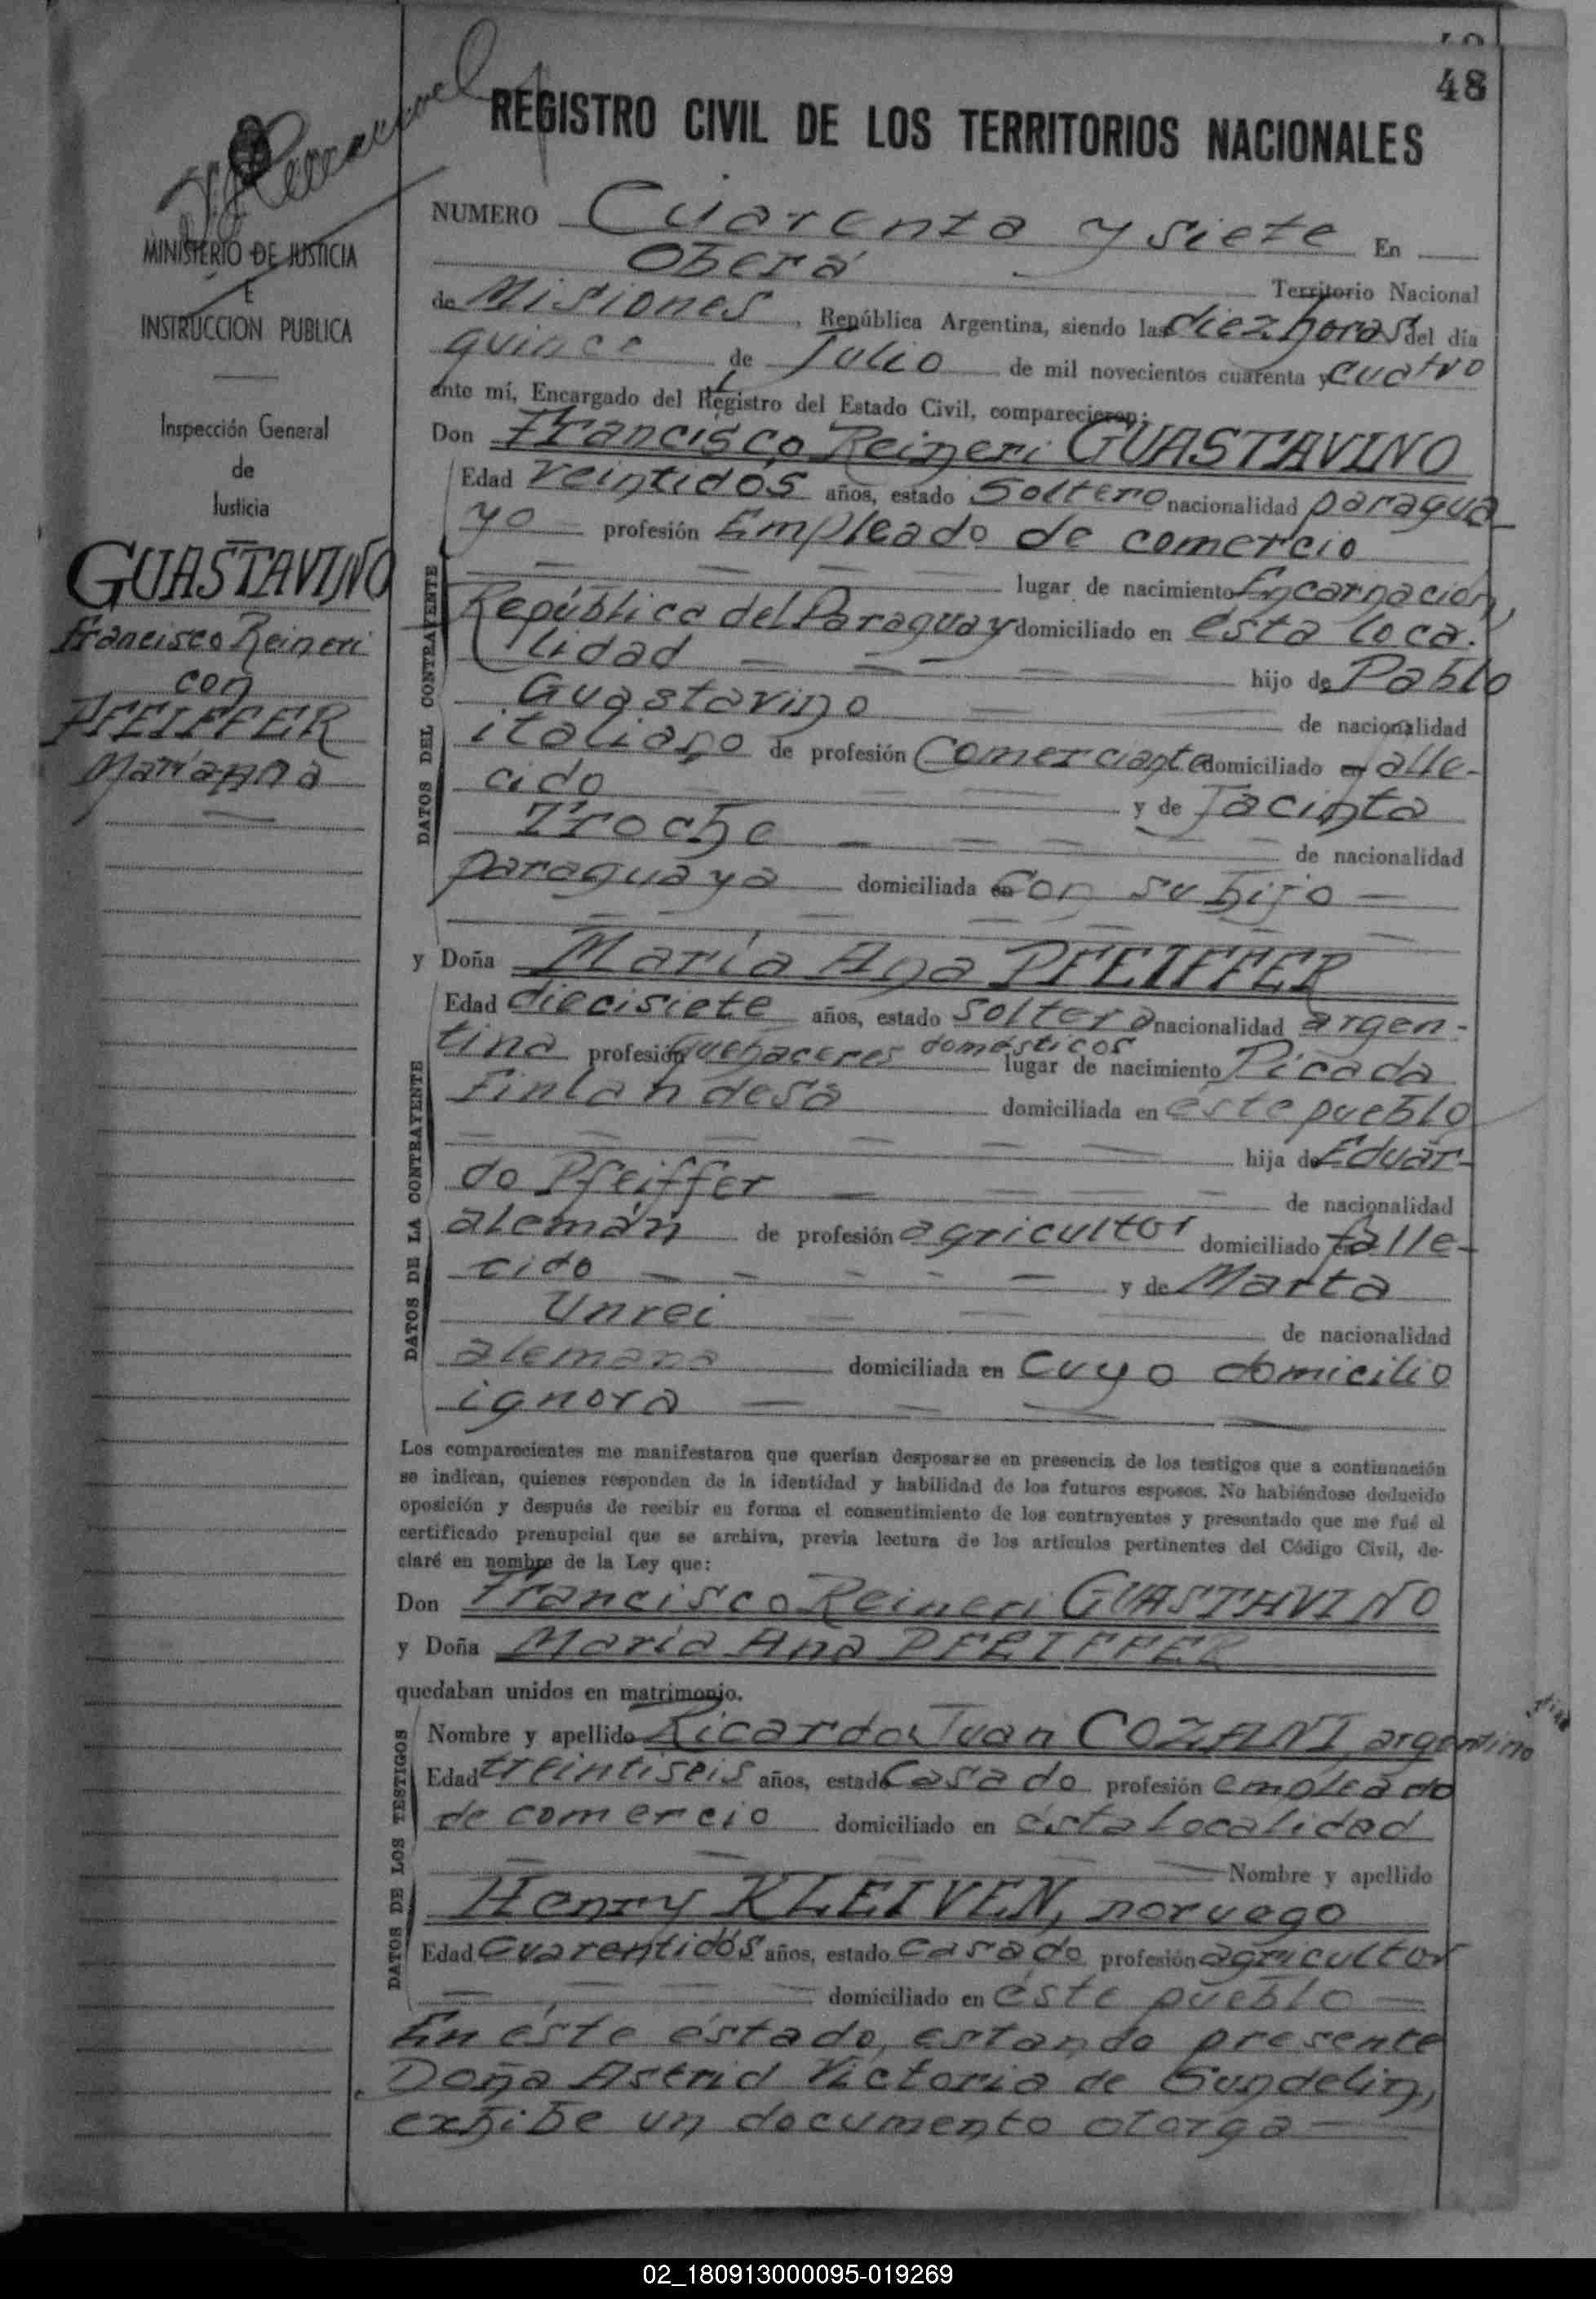 48
REGISTRO CIVIL DE LOS TERRITORIOS NACIONALES
MINISTERIO DE JUSTICIA
E
INSTRUCCION PUBLICA
Inspección General
de
Justicia
GUASTAVINO
Francisco Reineri
con
PFEIFFER
María Ana
NUMERO Cuarenta y siete En
Oberá Territorio Nacional
de Misiones, República Argentina, siendo las diez horas del día
quince de Julio de mil novecientos cuarenta y cuatro
ante mí, Encargado del Registro del Estado Civil, comparecieron:
Don Francisco Reineri GUASTAVINO
Edad veintidós años, estado Soltero nacionalidad paragua
yo profesión Empleado de comercio
lugar de nacimiento Encarnación,
República del Paraguay domiciliado en ésta loca.
lidad hijo de Pablo
Guastavino de nacionalidad
italiano de profesión Comerciante domiciliado en falle-
cido y de Jacinta
Troche de nacionalidad
paraguaya domiciliada en con su hijo
DATOS DEL CONTRAYENTE
y Doña María Ana PFEIFFER
Edad diecisiete años, estado soltera nacionalidad argen-
tina profesión quehaceres domésticos lugar de nacimiento Picada
Finlandesa domiciliada en éste pueblo
hija de Eduar-
do Pfeiffer de nacionalidad
alemán de profesión agricultor domiciliado en falle-
cido y de Marta
Unrei de nacionalidad
alemana domiciliada en cuyo domicilio
ignora
DATOS DE LA CONTRAYENTE
Los comparecientes me manifestaron que querían desposarse en presencia de los testigos que a continuación
se indican, quienes responden de la identidad y habilidad de los futuros esposos. No habiéndose deducido
oposición y después de recibir en forma el consentimiento de los contrayentes y presentado que me fué el
certificado prenupcial que se archiva, previa lectura de los artículos pertinentes del Código Civil, de-
claré en nombre de la Ley que:
Don Francisco Reineri GUASTAVINO
y Doña María Ana PFEIFFER
quedaban unidos en matrimonio.
Nombre y apellido Ricardo Juan COZANI, argentino
Edad treintiseis años, estado Casado profesión empleado
de comercio domiciliado en ésta localidad
Nombre y apellido
Henry KLEIVEN, noruego
Edad Cuarentidós años, estado casado profesión agricultor
domiciliado en éste pueblo
DATOS DE LOS TESTIGOS
En éste éstado, estando presente
Doña Astrid Victoria de Sundelin,
exhibe un documento otorga
02_180913000095-019269